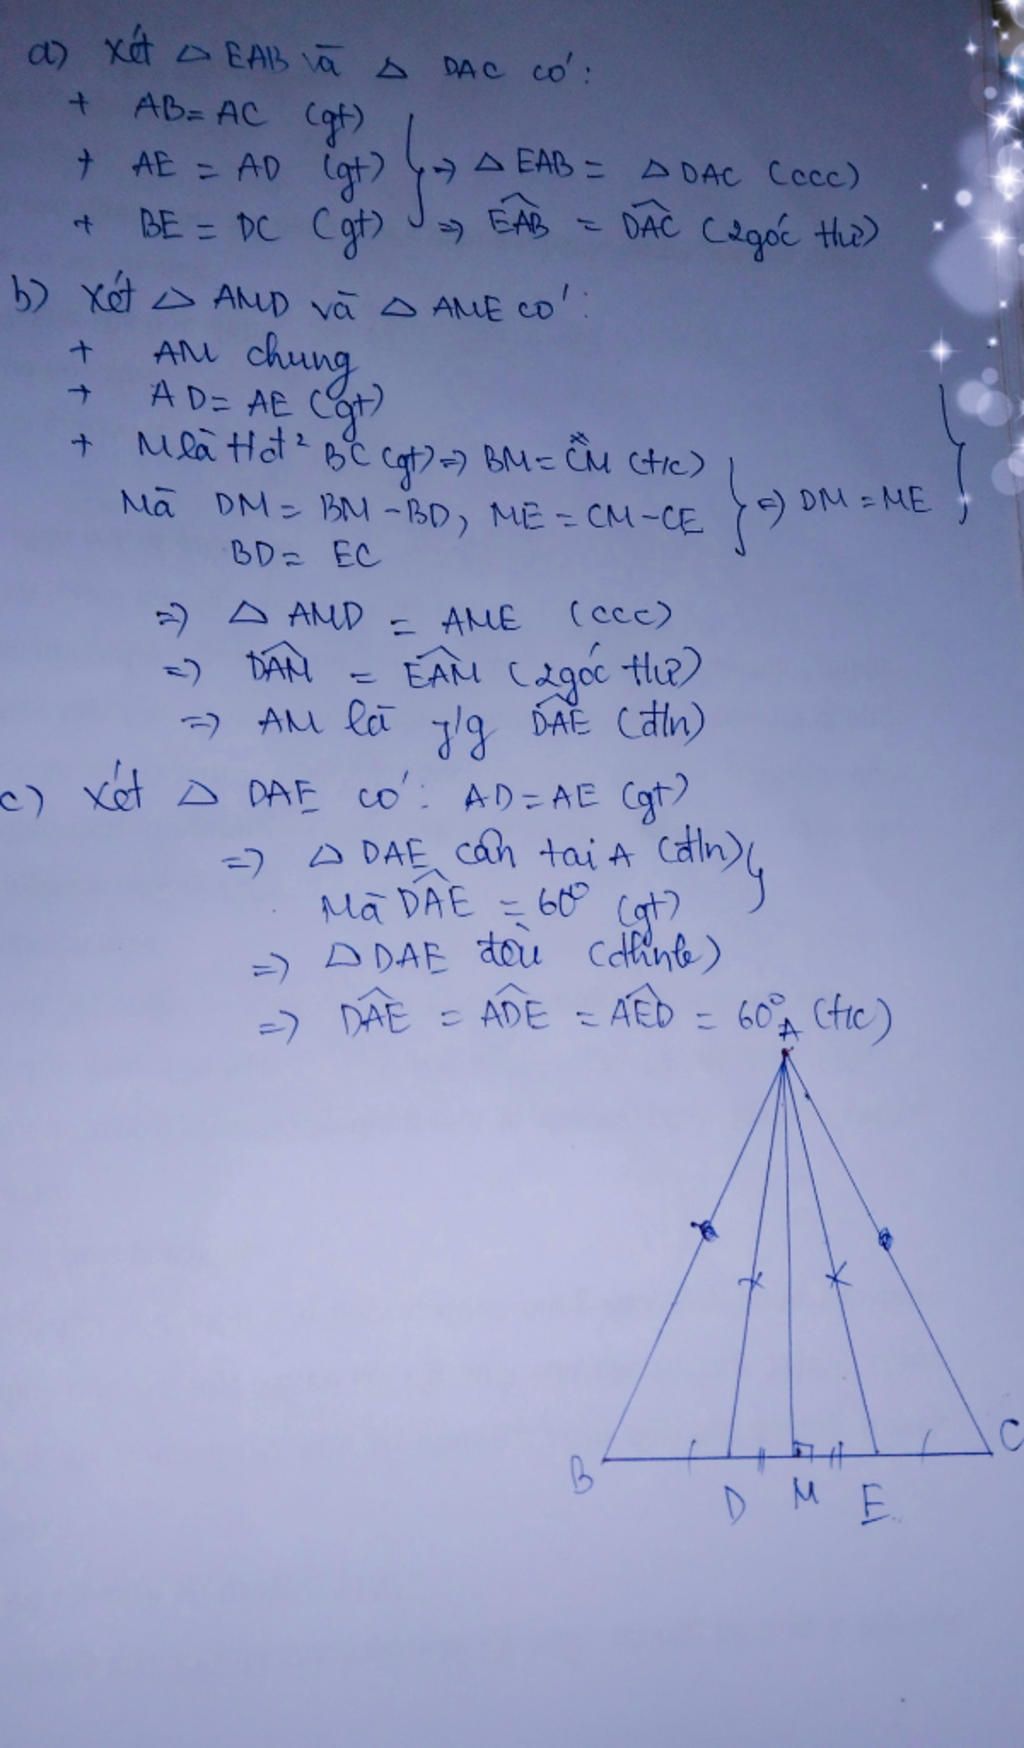 a) Xét △ EAB và △ DAC có:
+ AB = AC (gt)
+ AE = AD (gt) } => △ EAB = △ DAC (ccc)
+ BE = DC (gt) => EAB^ = DAC^ (2góc tư)
b) Xét △ AMD và △ AME có:
+ AM chung
+ AD = AE (gt)
+ M là BC (gt) => BM = CM (t/c)
Mà DM = BM - BD, ME = CM - CE } => DM = ME }
BD = EC
=> △ AMD = AME (ccc)
=> DAM^ = EAM^ (2góc tư)
=> AM là p/g DAE^ (đ/n)
c) Xét △ DAE có: AD = AE (gt)
=> △ DAE cân tai A (đ/n) }
Mà DAE^ = 60° (gt)
=> △ DAE đều
=> DAE^ = ADE^ = AED^ = 60° (t/c)
A
B D M E C